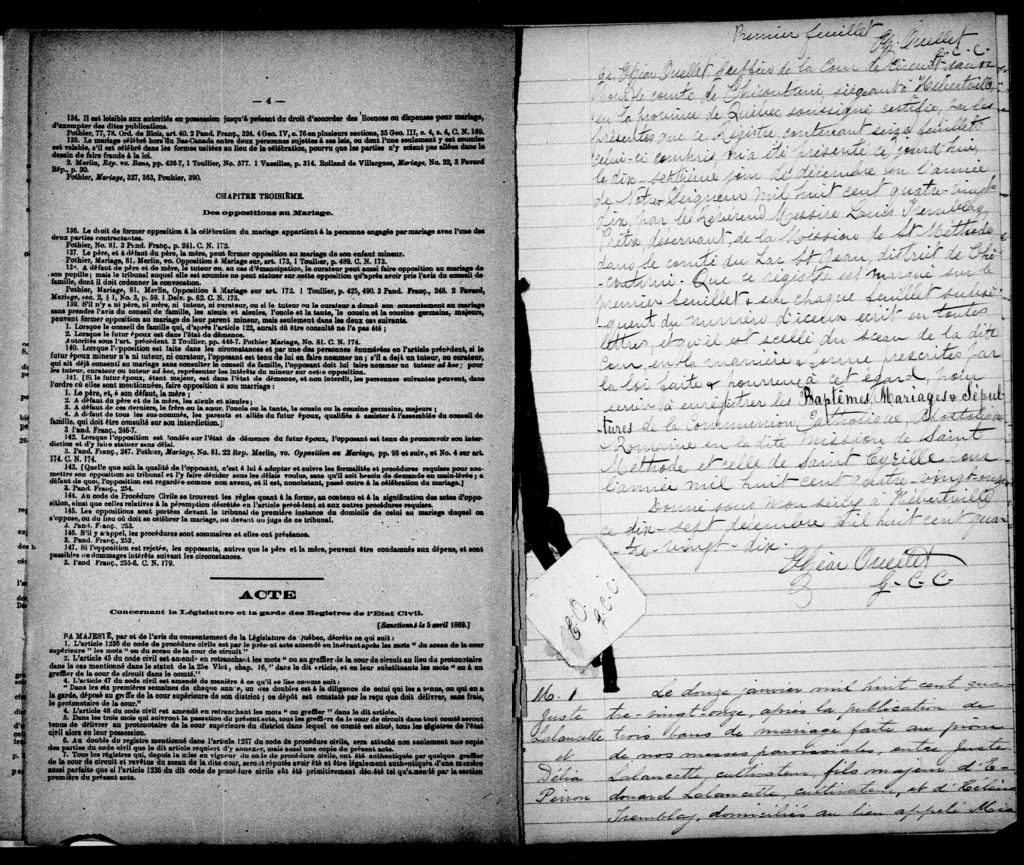 — 4 —
134. Il est loisible aux autorités en possession jusqu'à présent du droit d'accorder les licences ou dispenses pour mariage,
d'exempter des dites publications.
Pothier, 77, 78. Ord. de Blois, art. 40. 2 Pand. Franç., 324. 4 Geo. IV, c. 76 en plusieurs sections, 35 Geo. III, c. 4, s. 4, C. N. 169.
135. Le mariage célébré hors du Bas-Canada entre deux personnes sujettes à ses lois, ou dont l'une seulement y est soumise
est valable, s'il est célébré dans les formes usitées au lieu de la célébration, pourvu que les parties n'y soient pas allées dans le
dessin de faire fraude à la loi.
2. Merlin, Rép. vo. Bans, pp. 436-7, 1 Toullier, No. 577. 1 Vazeilles, p. 314. Rolland de Villargues, Mariage, No. 22, 3 Favard
Rép., p. 30.
Pothier, Mariage, 327, 363, Pouhier, 390.
CHAPITRE TROISIÈME.
Des oppositions au Mariage.
136. Le droit de former opposition à la célébration du mariage appartient à la personne engagée par mariage avec l'une des
deux parties contractantes.
Pothier, No. 81. 3 Pand. Franç., p. 241. C. N. 172.
137. Le père, et à défaut du père, la mère, peut former opposition au mariage de son enfant mineur.
Pothier, Mariage, 81. Merlin, vo. Opposition à Mariage sur, art. 173, 1 Toullier, p. 489. C. N. 173.
13. A défaut de père et de mère, le tuteur ou, au cas d'émancipation, le curateur peut aussi faire opposition au mariage de
son pupille; mais le tribunal auquel elle est soumise ne peut statuer sur cette opposition qu'après avoir pris l'avis du conseil de
famille, dont il doit ordonner la convocation.
Pothier, Mariage, 81. Merlin, Opposition à Mariage sur art. 172. 1 Toullier, p. 425, 490. 3 Pand. Franç., 248. 2 Favard,
Mariage, sec. 2, § 1, No. 3, p. 59. 1 Delv. p. 62. C. N. 175.
139. S'il n'y a ni père, ni mère, ni tuteur, ni curateur, ou si le tuteur ou le curateur a donné son consentement au mariage
sans prendre l'avis du conseil de famille, les aïeuls et aïeules, l'oncle et la tante, le cousin et la cousine germains, majeurs,
peuvent former opposition au mariage de leur parent mineur, mais seulement dans les deux cas suivants.
1. Lorsque le conseil de famille qui, d'après l'article 122, aurait dû être consulté ne l'a pas été;
2. Lorsque le futur époux est dans l'état de démence.
Autorités sous l'art. précédent 2 Toullier, pp. 446-7. Pothier Mariage, No. 81. C. N. 174.
140. Lorsque l'opposition est faite dans les circonstances et par une des personnes énumérées en l'article précédent, si le
futur époux mineur n'a ni tuteur, ni curateur, l'opposant est tenu de lui en faire nommer un; s'il a déjà un tuteur, ou curateur,
qui ait déjà consenti au mariage sans consulter le conseil de famille, l'opposant doit lui faire nommer un tuteur ad hoc; pour
les tuteur, curateur ou tuteur ad hoc, représenter les intérêts du mineur sur cette opposition.
141. [Si le futur époux, étant majeur, est dans l'état de démence, et non interdit, les personnes suivantes peuvent, dans
l'ordre où elles sont mentionnées, faire opposition à son mariage:
1. Le père, et, à son défaut, la mère;
2. A défaut du père et de la mère, les aïeuls et aïeules;
3. A défaut de ces derniers, le frère ou la sœur, l'oncle ou la tante, le cousin ou la cousine germains, majeurs;
4. A défaut de tous les sus-nommés, les parents et alliés du futur époux, qualifiés à assister à l'assemblée du conseil de
famille, qui doit être consulté sur son interdiction.]
3 Pand. Franç., 246-7.
142. Lorsque l'opposition est fondée sur l'état de démence du futur époux, l'opposant est tenu de promouvoir son inter-
diction et d'y faire statuer sans délai.
3. Pand. Franç., 247. Pothier, Mariage, No. 81. 22 Rep. Merlin, vo. Opposition au Mariage, pp. 98 et suiv., et No. 4 sur art.
174. C. N. 174.
143. [Quelle que soit la qualité de l'opposant, c'est à lui à adopter et suivre les formalités et procédures requises pour sou-
mettre son opposition au tribunal et l'y faire décider sous les délais voulus, sans qu'il soit besoin de demande en main-levée; à
défaut de quoi, l'opposition est regardée comme non avenue, et il est, nonobstant, passé outre à la célébration du mariage.]
3. Pand. Franç., 254.
144. Au code de Procédure Civile se trouvent les règles quant à la forme, au contenu et à la signification des actes d'oppo-
sition, ainsi que celles relatives à la péremption décrétée en l'article précédent et aux autres procédures requises.
145. Les oppositions sont portées devant le tribunal de première instance du domicile de celui au mariage duquel on
s'oppose, ou du lieu où doit se célébrer le mariage, ou devant un juge de ce tribunal.
3. Pand. Franç., 253.
146. S'il y a appel, les procédures sont sommaires et elles ont préséance.
3. Pand. Franç., 253.
147. Si l'opposition est rejetée, les opposants, autres que le père et la mère, peuvent être condamnés aux dépens, et sont
passibles de dommages intérêts suivant les circonstances.
3. Pand Franç., 255-6. C. N. 179.
ACTE
Concernant la Législature et la garde des Registres de l'Etat Civil.
[Sanctionné le 5 avril 1869.]
SA MAJESTÉ, par et de l'avis du consentement de la Législature de Québec, décrète ce qui suit:
1. L'article 1236 du code de procédure civile est par le présent acte amendé en insérant après les mots " du sceau de la cour
supérieure " les mots " ou du sceau de la cour de circuit."
2. L'article 45 du code civil est amendé en retranchant les mots " ou au greffier de la cour de circuit au lieu du protonotaire
dans le cas mentionné dans le statut de la 25e Vict, chap. 16," dans le dit article, et en leur substituant les mots " ou à un
greffier de la cour de circuit dans le comté."
3. L'article 47 du code civil est amendé de manière à ce qu'il se lise comme suit:
" Dans les six premières semaines de chaque année, un des doubles est à la diligence de celui qui les a tenus, ou qui en a
la garde, déposé au greffe de la cour supérieure de son district; ce dépôt est constaté par le reçu que doit délivrer, sans frais,
le protonotaire de la cour."
4. L'article 48 du code civil est amendé en retranchant les mots " ou greffier " dans le dit article.
5. Dans les trois mois qui suivront la passation du présent acte, tous les greffiers de la cour de circuit dans tout comté seront
tenus de délivrer au protonotaire de la cour supérieure du district dans lequel ce comté est situé, tous les registres de l'état
civil alors en leur possession.
6. Au double du registre mentionné dans l'article 1237 du code de procédure civile, sera attaché non seulement une copie
des parties du code civil que le dit article requiert d'y annexer, mais aussi une copie du présent acte.
7. Tous les registres qui, depuis la mise en vigueur du code de procédure civil, ont été authentiqués par quelque greffier
de la cour de circuit et revêtus du sceau de la dite cour, seront réputés avoir été et être légalement authentiqués d'une manière
aussi parfaite que si l'article 1236 du dit code de procédure civile eût été primitivement décrété tel qu'amendé par la section
première du présent acte.
Premier feuillet
Ch. Ouellet
G. C. C.
Je Chéar Ouellet Greffier de la Cour de Circuit dans et
pour le comté de Chicoutimi, siégeant à Hébertville
en la province de Québec soussigné certifie par les
présentes que ce Registre contenant seize feuillets
celui-ci compris m'a été présenté ce jourd'hui
le dix-septième jour de décembre en l'année
de Notre Seigneur mil huit cent quatre-vingt
dix, par le Révérend Messire Louis Tremblay
Prêtre desservant de la Mission de St Méthode
dans le comté du Lac St Jean, district de Chi-
-coutimi. Que ce registre est marqué sur le
premier feuillet & sur chaque feuillet subsé-
-quent du numéro d'iceux écrit en toutes
lettres, et qu'il est scellé du sceau de la dite
Cour, en la manière & forme prescrites par
la loi faite & pourvue à cet égard, pour
servir à enregistrer les Baptêmes, Mariages & Sépul-
tures de la Communion Catholique, Apostolique
& Romaine en la dite mission de Saint
Méthode et celle de Saint Cyrille pour
l'année mil huit cent quatre-vingt-onze
Donné sous mon seing à Hébertville
ce dix-sept décembre mil huit cent qua-
-tre-vingt-dix.
Chéar Ouellet
G. C. C.
C O.
g. c. c
M. 1 Le douze janvier mil huit cent qua
Juste tre-vingt-onze, après la publication de
Lalancette trois bans de mariage faite au prône
et de nos messes paroissiales entre Juste
Délia Lalancette, cultivateur, fils majeur d'E-
Perron douard Lalancette, cultivateur, et d'Hélène
Tremblay, domiciliés au lieu appelé Mis